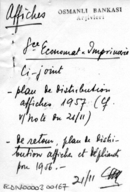 Affiches
OSMANLI BANKASI
Arşivleri
Sce Economat - Imprimerie
Ci-joint
- plan de distribution
affiches 1957 (cf.
v/note du 21/11)
- De retour, plan de distri-
bution affiche et dépliant
1956.-
21/11